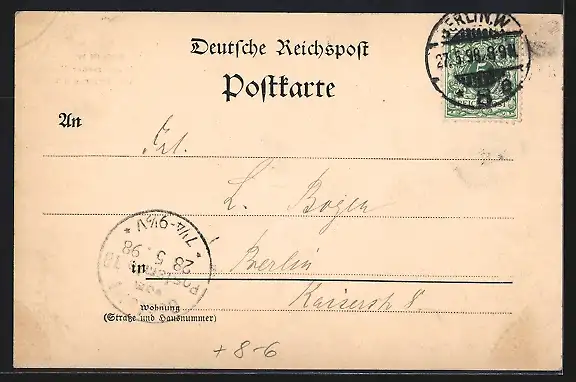 BERLIN.W.
27.5.98. 8-9N
* 8 c
Deutsche Reichspost
Postkarte
An
Frl.
L. Bogen
7¼-9½V *
28 5 98
in Berlin
Kaiserstr 8
Wohnung
(Straße und Hausnummer)
+ 8-6